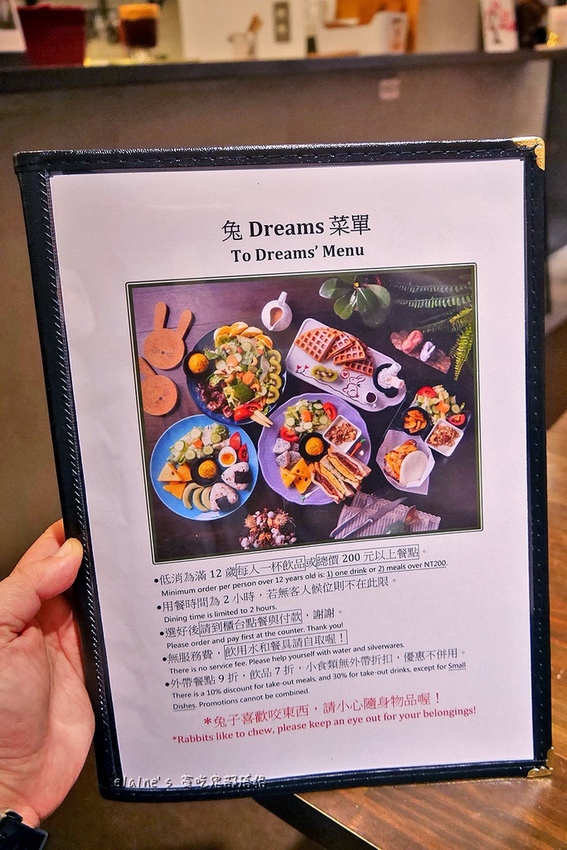 兔 Dreams 菜單
To Dreams' Menu
•低消為滿 12 歲每人一杯飲品或總價 200 元以上餐點。
Minimum order per person over 12 years old is: 1) one drink or 2) meals over NT200.
•用餐時間為 2 小時，若無客人候位則不在此限。
Dining time is limited to 2 hours.
•選好後請到櫃台點餐與付款，謝謝。
Please order and pay first at the counter. Thank you!
•無服務費，飲用水和餐具請自取喔！
There is no service fee. Please help yourself with water and silverwares.
•外帶餐點 9 折，飲品 7 折，小食類無外帶折扣，優惠不併用。
There is a 10% discount for take-out meals, and 30% for take-out drinks, except for Small
Dishes. Promotions cannot be combined.
＊兔子喜歡咬東西，請小心隨身物品喔！
*Rabbits like to chew, please keep an eye out for your belongings!
elaine's